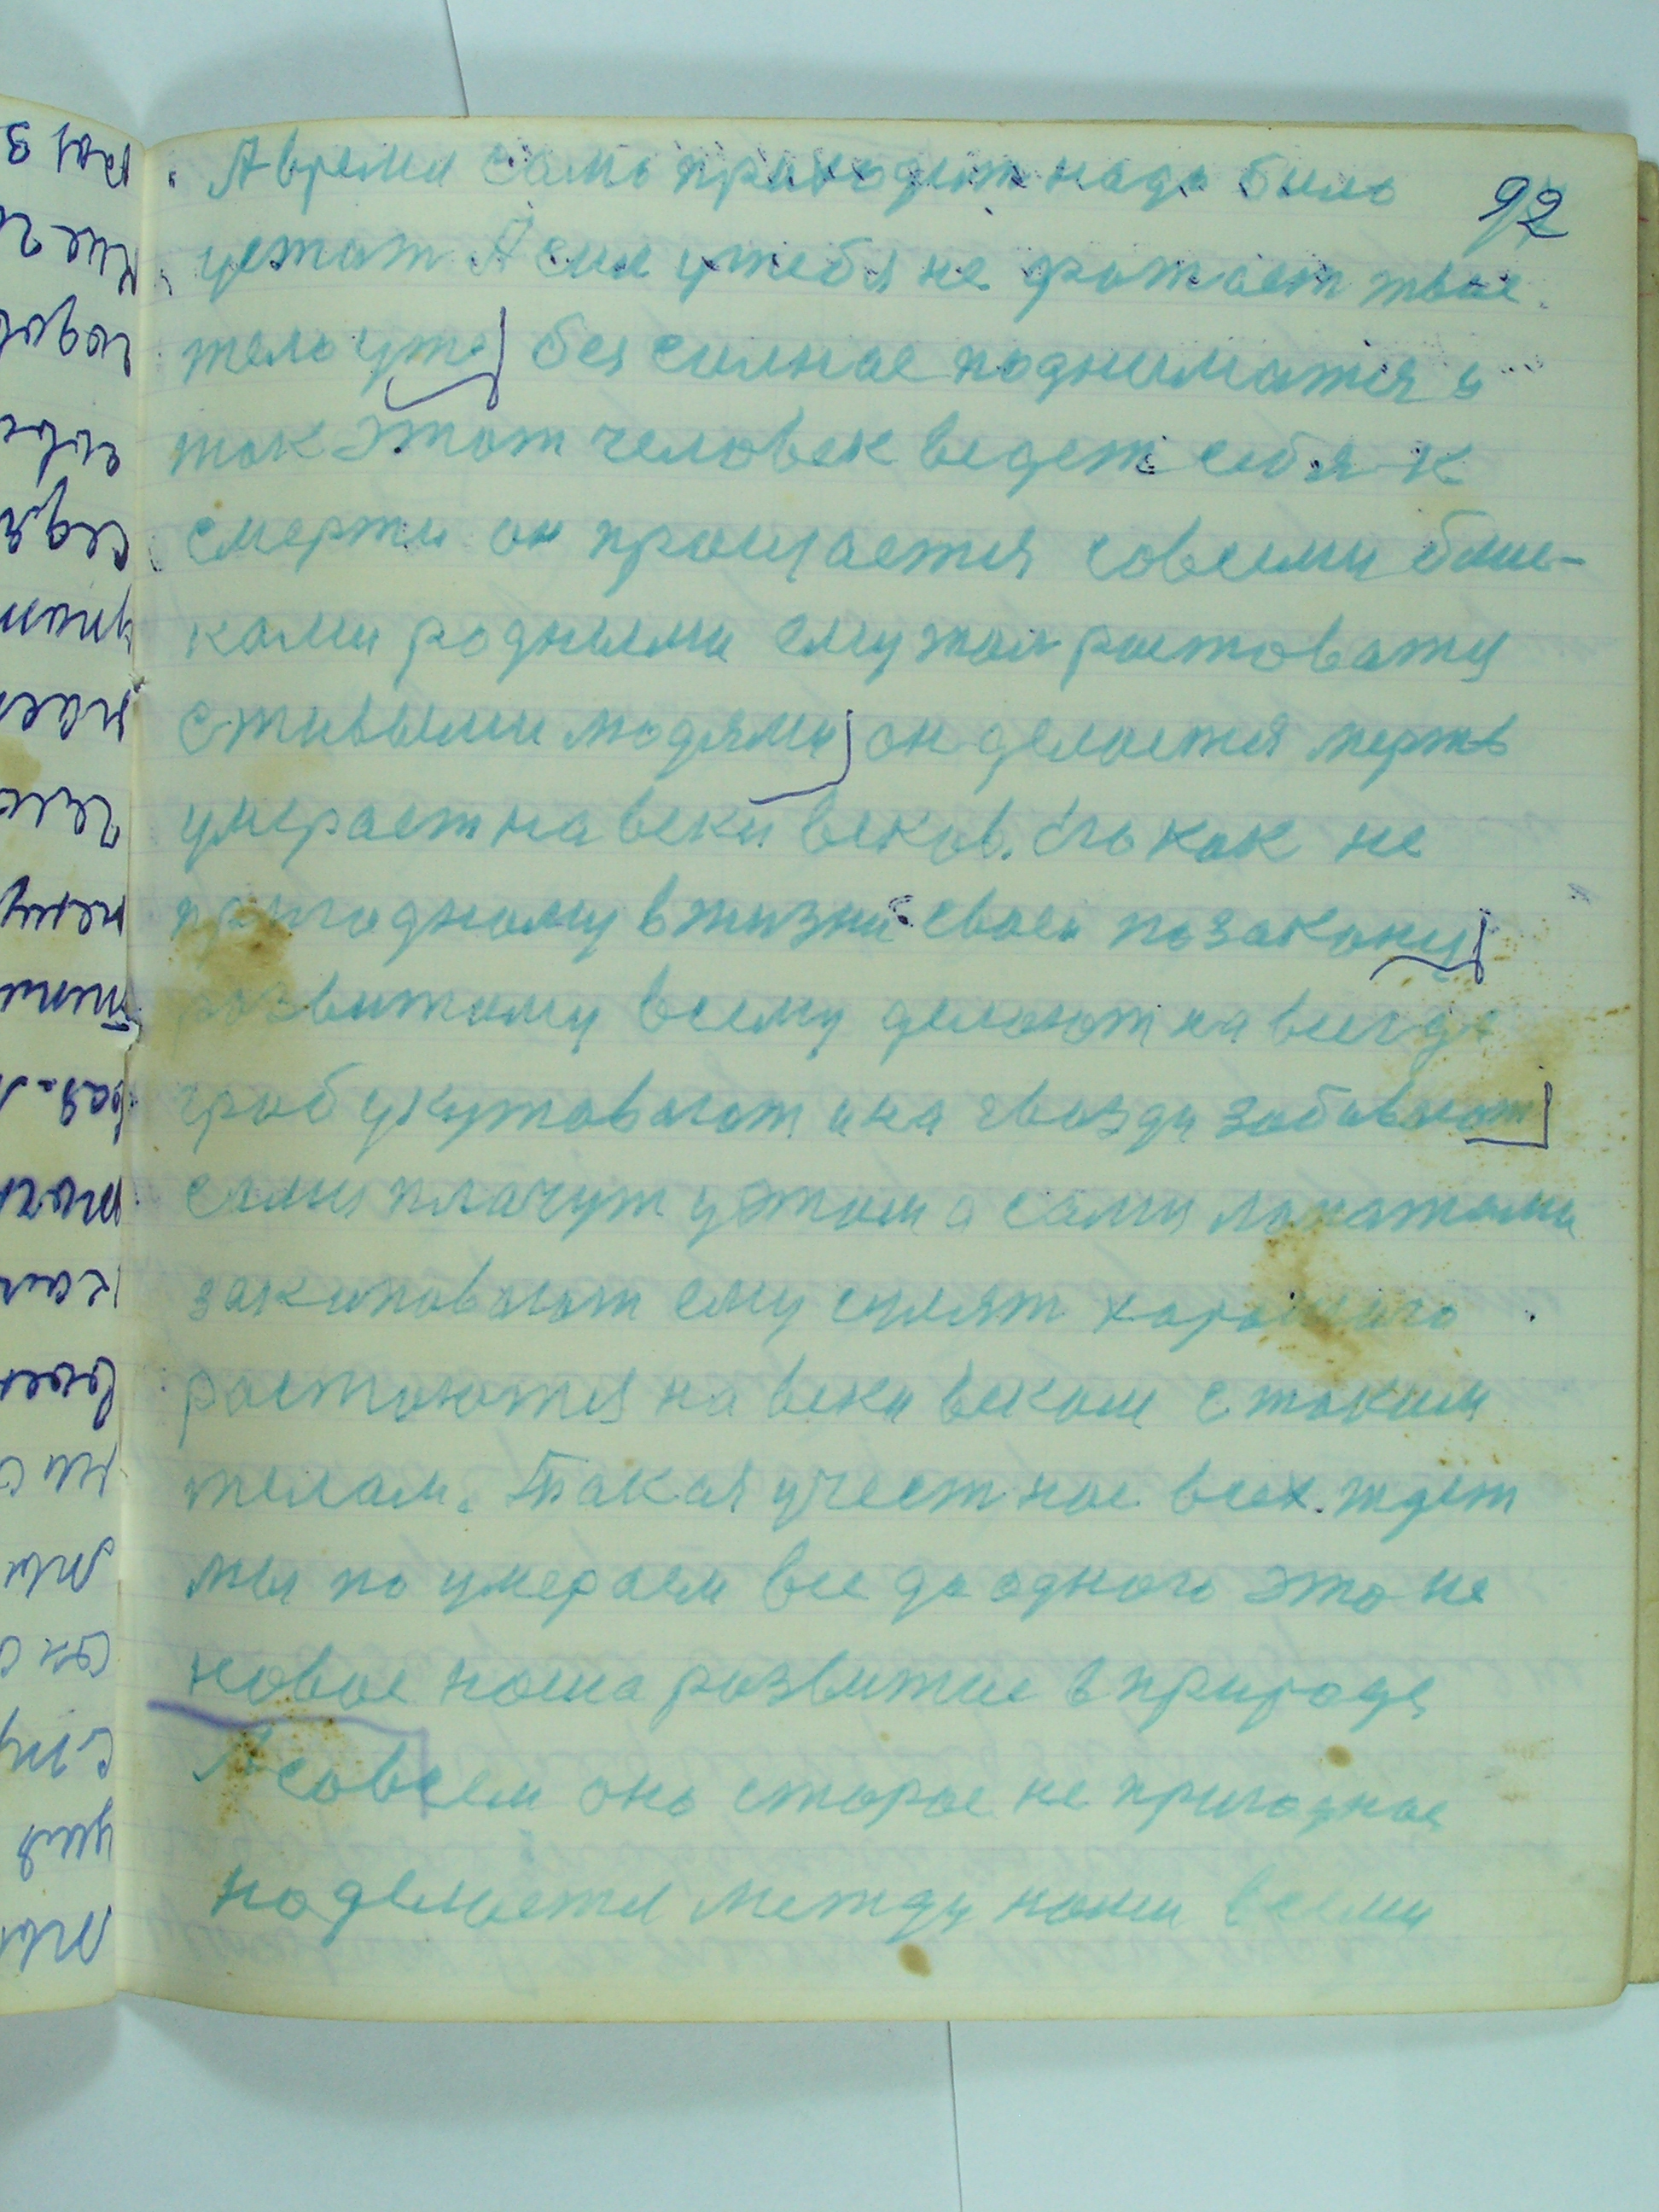 92
А время само проходит надо било
устат А сил утебя не хватает твае
тело уже без силное подниматся и
так Этот человек ведет себя к
смерти он прощается совсеми близ-
ками родными ему жал растоватся
с живыми людями он делается мертв
умираит на веки веков. Его как не
пригодному в жизни своей по закону
развитому всему делают на всегда
гроб укутовают и на гвозди забивают
сами плачут у этом а сами лопатами
закиповают ему сулят харошего
растоются на веки веком с таким
телам. Такая участ нас всех ждет
мы по умераем все до одного это не
новае наша развитие в природе
А совсем оно старое не пригоднае
но делается между нами всеми